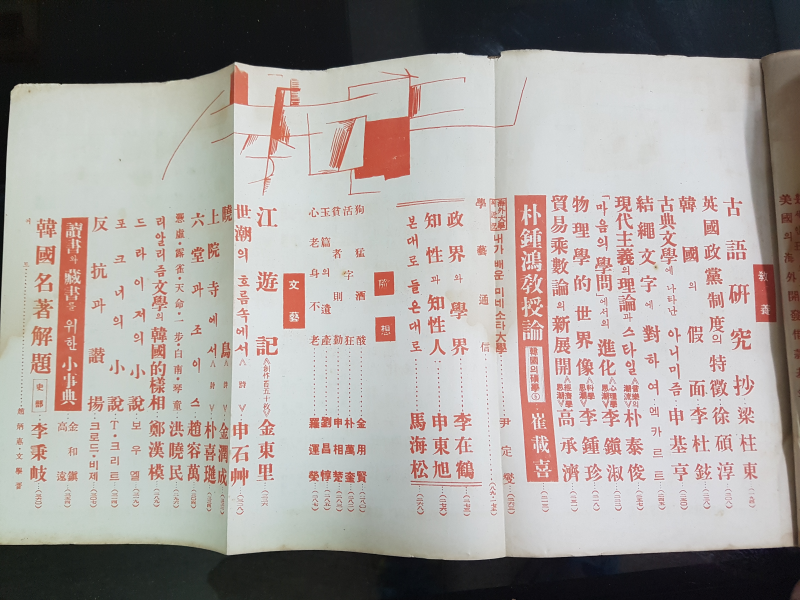 敎養
古語硏究抄 梁柱東
英國政黨制度의 特徵 徐碩淳
韓國의 假面 李杜鉉
古典文學에 나타난 아니미즘 申基亨
結繩文字에 對하여 엑카르트
現代主義의 理論과 스타일 朴泰俊
「마음의 學問」에서의 進化 李鎭淑
物理學的 世界像 李鍾珍
貿易乘數論의 新展開 高承濟
朴鍾鴻敎授論 韓國의 碩學 ① 崔載喜
내가 배운 미네소타大學 尹定燮
學藝通信
政界와 學界 李在鶴
知性과 知性人 申東旭
본대로 들은대로 馬海松
隨想
狗猛酒酸 金用賢
活字狂 朴萬奎
貧者則勤 申相楚
玉篇의 遺產 劉昌惇
心老身不老 羅運榮
文藝
江遊記 金東里
世潮의 흐름속에서 申石艸
曉鳥 金潤成
上院寺에서 朴喜璡
六堂과 조이스 趙容萬
憑虛・露雀・天命・一步・白南・琴童 洪曉民
리알리즘文學의 韓國的樣相 鄭漢模
드라이저의 小說 보우엘
포크너의 小說 T・크리트
反抗과 讚揚 크로드・비제
讀書와 藏書를 위한 小事典 金和鎭 高遠
韓國名著解題 史部 李秉岐